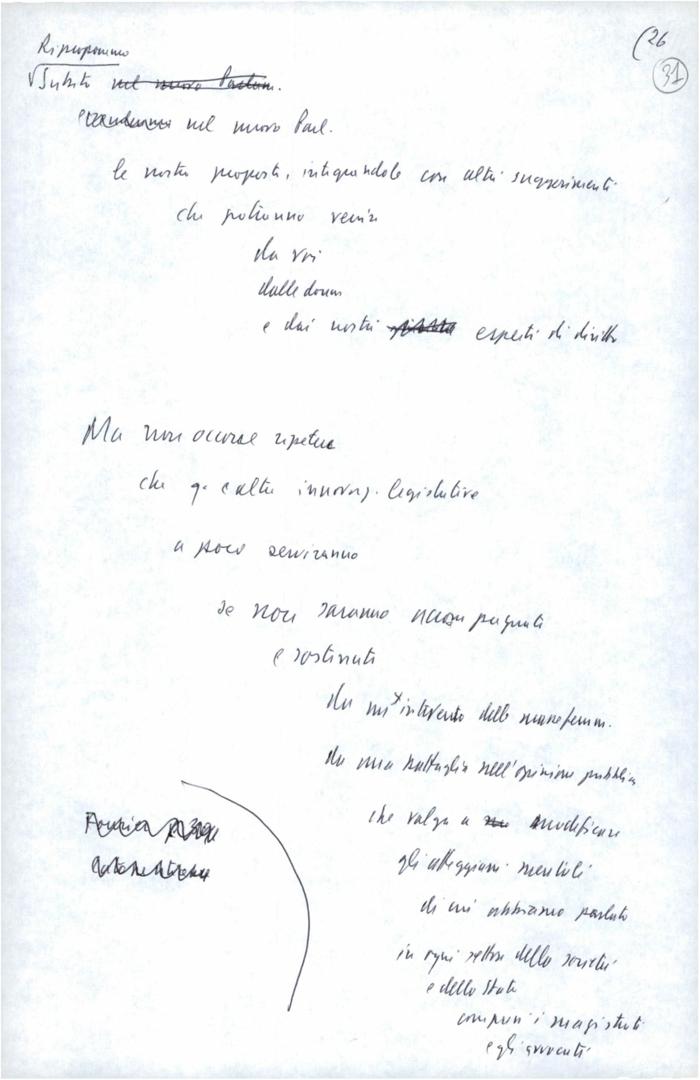 (26
31
Riproponiamo
Subito nel nuovo Parlam.
nel nuovo Parl.
le nostre proposte, integrandole con altri suggerimenti
che potranno venire
da voi
dalle donne
e dai nostri esperti di diritto
Ma non occorre ripetere
che q. e altre innovaz. legislative
a poco serviranno
se non saranno accompagnate
e sostinute
da un intervento delle masse femm.
da una battaglia nell'opinione pubblica
che valga a modificare
gli atteggiam. mentali
di cui abbiamo parlato
in ogni settore della società
e dello Stato
compresi i magistrati
e gli avvocati